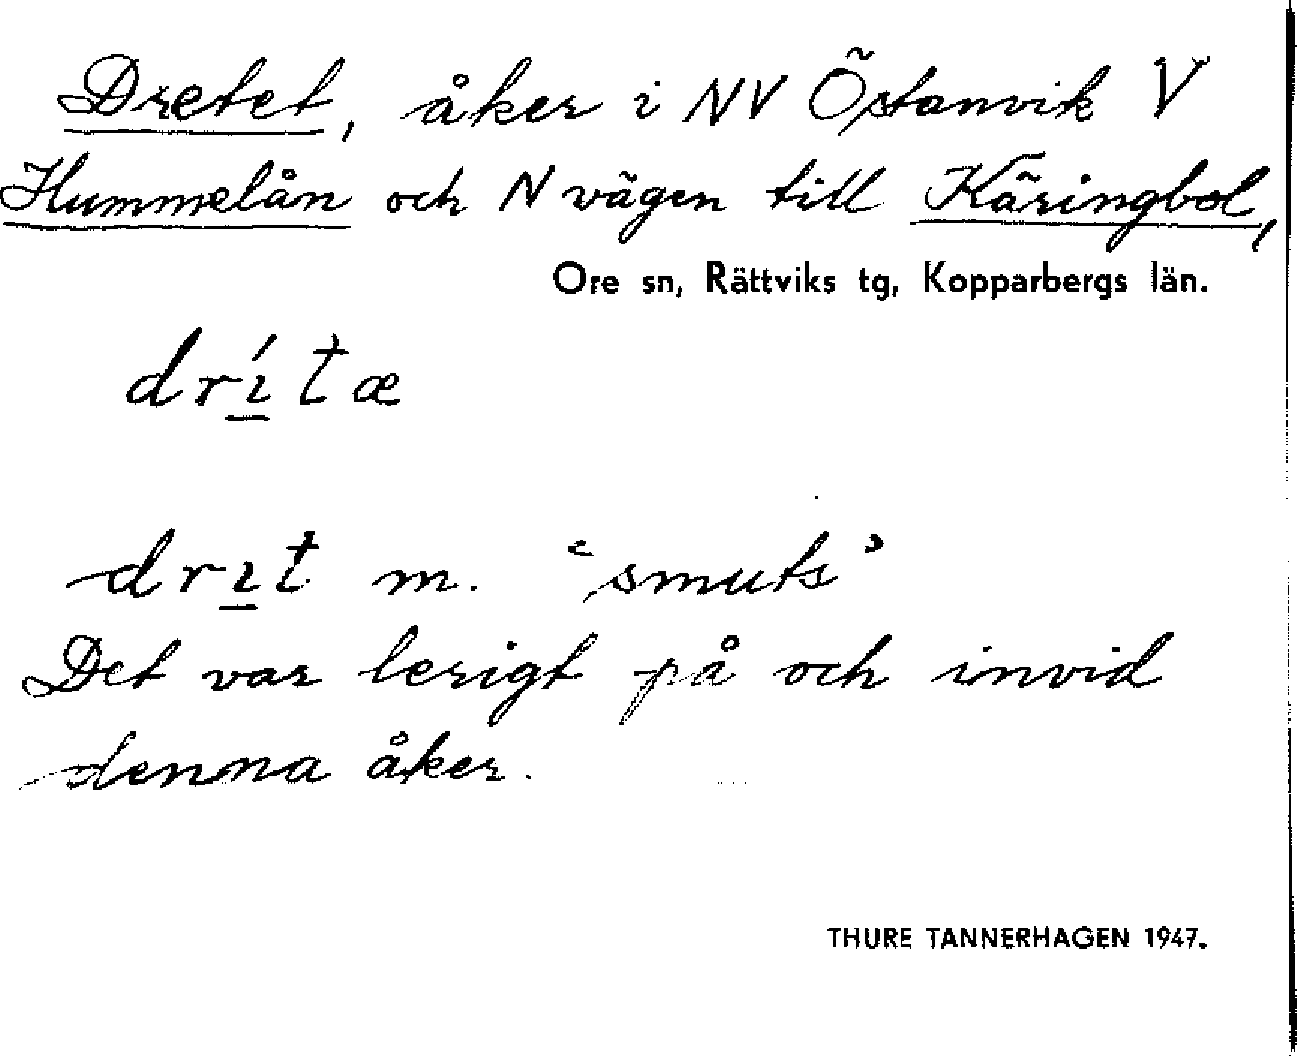 Dretet, åker i NV Östanvik V
Hummelån och N vägen till Käringbol,
Ore sn, Rättviks tg, Kopparbergs län.
drı̲́tæ
drı̲t m. ‘smuts’
Det var lerigt på och invid
denna åker.
THURE TANNERHAGEN 1947.